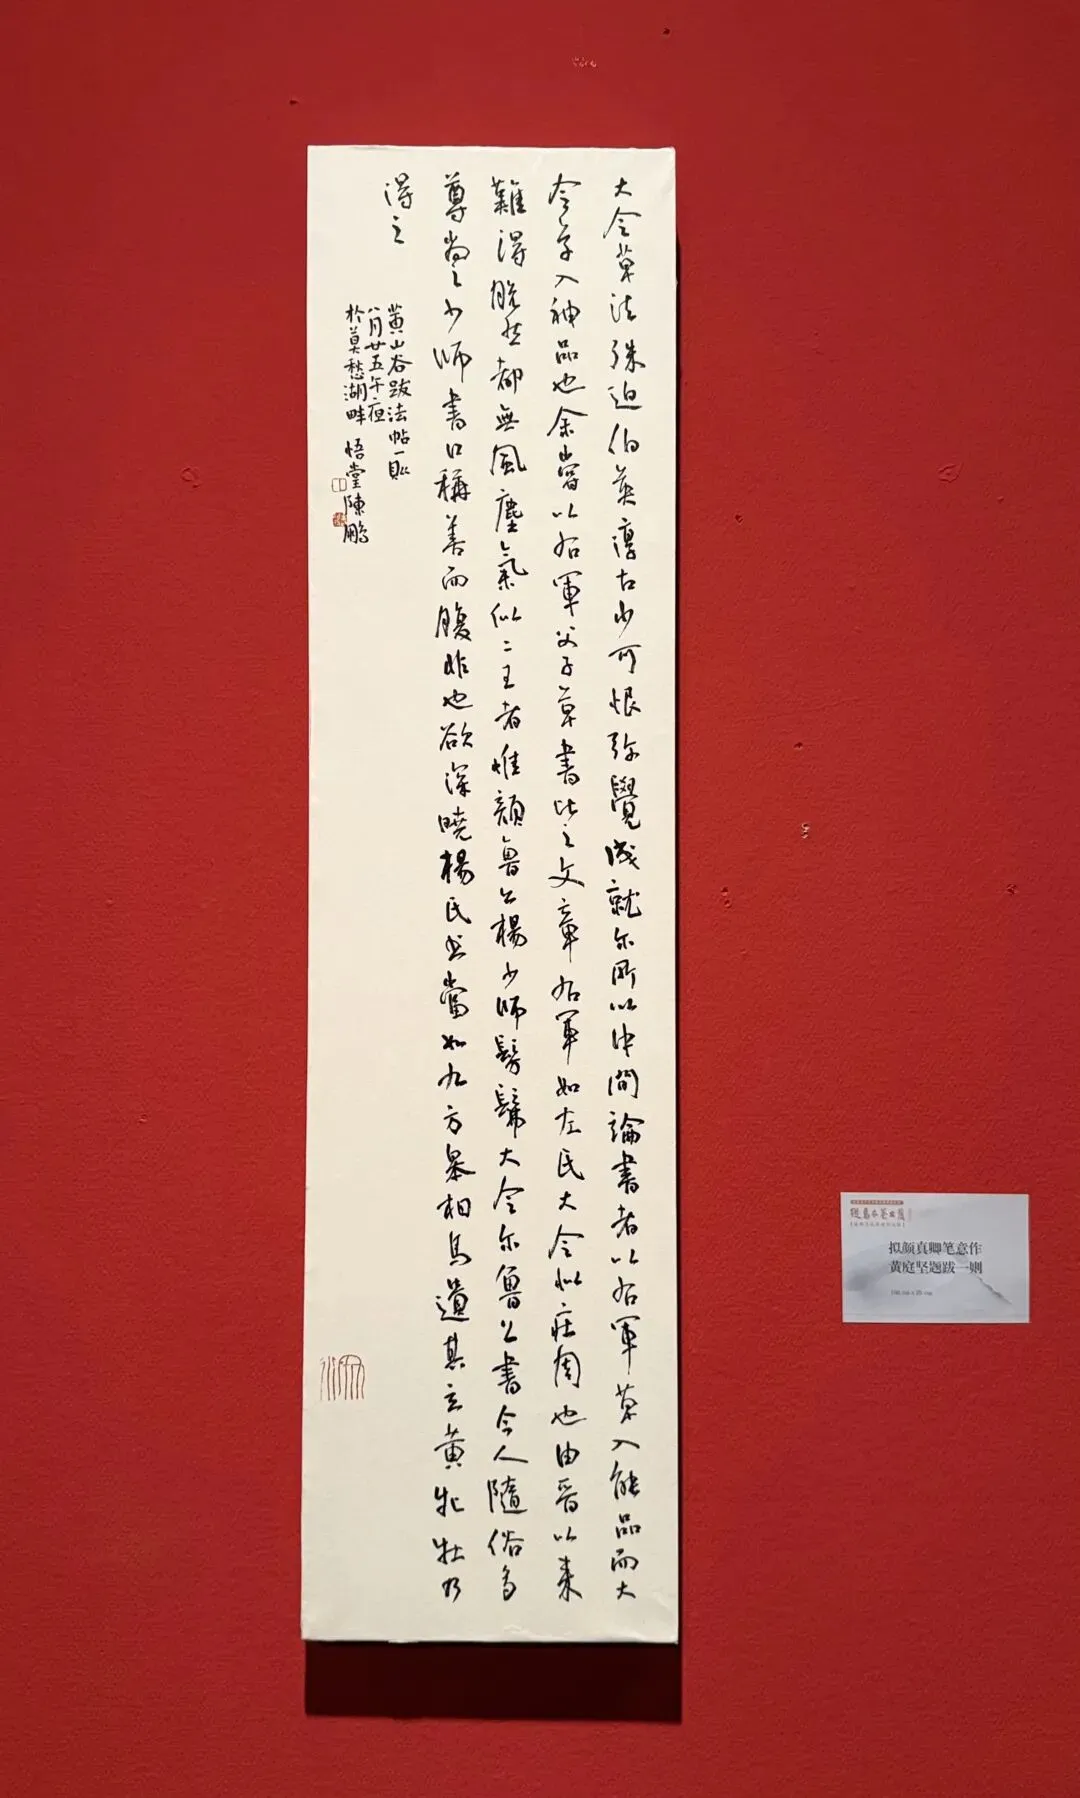 大令草法殊迫伯英淳古少可恨弥覺成就尔所以中間論書者以右軍草入能品而大
令草入神品也余嘗以右軍父子草書比之文章右軍如左氏大令似莊周也由晉以来
難得脱然都無風塵氣似二王者惟顏魯公楊少師髣髴大令尔魯公書今人隨俗多
尊尚之少師書口稱善而腹非也欲深曉楊氏書當如九方皋相馬遺其玄黄牝牡乃
得之
黄山谷跋法帖一則
八月廿五午夜
於莫愁湖畔 悟堂陳鵬
拟颜真卿笔意作
黄庭坚题跋一则